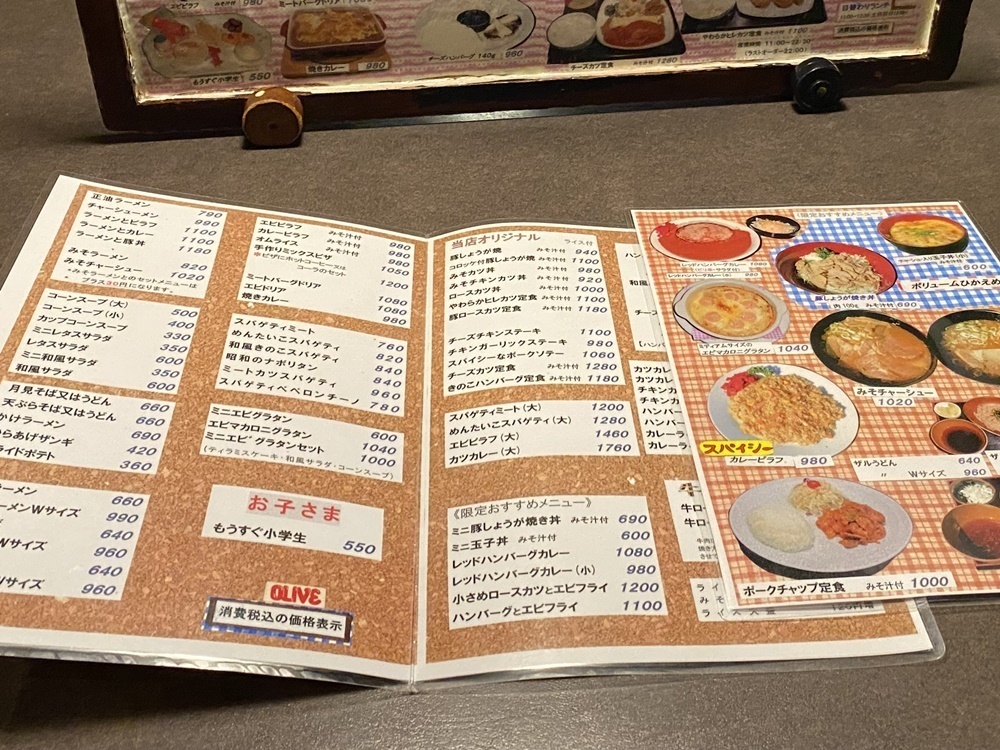 エビピラフ みそ汁付 980
もうすぐ小学生 550
ミートバードリア
焼きカレー 980
チーズハンバーグ 140g 960
チーズカツ定食 みそ汁付 1280
やわらかヒレカツ定食 みそ汁付
営業時間 11:00~22:30
(ラストオーダー22:00)
日替わりランチ
消費税込の価格表示
正油ラーメン 790
チャーシューメン 990
ラーメンとピラフ 1100
ラーメンとカレー 1100
ラーメンと豚丼 1190
みそラーメン 820
みそチャーシュー 1020
*みそラーメンとのセットメニューは
プラス30円になります。
コーンスープ(大) 500
コーンスープ(小) 400
カップコーンスープ 330
ミニレタスサラダ 350
レタスサラダ 600
ミニ和風サラダ 350
和風サラダ 600
月見そば又はうどん 660
天ぷらそば又はうどん 660
かけラーメン 690
らあげザンギ 420
ライドポテト 360
ーメン 660
ーメンWサイズ 990
640
Wサイズ 960
640
Wサイズ 960
エビピラフ みそ汁付 980
カレーピラフ みそ汁付 980
オムライス みそ汁付 980
手作りミックスピザ 1050
※ピザにホットコーヒー又は
コーラのセット 1200
ミートバードリア 1080
エビドリア 1080
焼きカレー 980
スパゲティミート 760
めんたいこスパゲティ 820
和風きのこスパゲティ 840
昭和のナポリタン 840
ミートカツスパゲティ 960
スパゲティペペロンチーノ 780
ミニエビグラタン 600
エビマカロニグラタン 1040
ミニエビグラタンセット 1000
(ティラミスケーキ・和風サラダ・コーンスープ)
お子さま
もうすぐ小学生 550
OLIVE
消費税込の価格表示
当店オリジナル ライス付
豚しょうが焼 みそ汁付 940
コロッケ付豚しょうが焼 みそ汁付 1100
みそカツ丼 みそ汁付 980
みそチキンカツ丼 みそ汁付 920
ロースカツ丼 みそ汁付 1000
やわらかヒレカツ定食 みそ汁付 1100
豚ロースカツ定食 みそ汁付 1180
チーズチキンステーキ 1100
チキンガーリックステーキ 980
スパイシーなポークソテー 1060
チーズカツ定食 みそ汁付 1280
きのこハンバーグ定食 みそ汁付 1180
スパゲティミート(大) 1200
めんたいこスパゲティ(大) 1280
エビピラフ(大) 1460
カツカレー(大) 1760
《限定おすすめメニュー》
ミニ豚しょうが焼き丼 みそ汁付 690
ミニ玉子丼 みそ汁付 600
レッドハンバーグカレー 1080
レッドハンバーグカレー(小) 980
小さめロースカツとエビフライ 1200
ハンバーグとエビフライ 1100
ハン
和風
チーズ
【ハンバ
カツカ
カツカレ
チキンカ
チキンカ
ハンバー
カレーラ
カレーラ
牛ロー
牛ロー
ライ
みそ
ライス大盛 120円増
《限定おすすめメニュー》
レッドハンバーグカレー 1080
(ピリ辛・サラダ付)
レッドハンバーグカレー(小) 980
豚しょうが焼き丼
肉100g みそ汁付 690
玉子丼(小)
みそ汁付 600
ボリュームひかえめ
ミディアムサイズの
エビマカロニグラタン 1040
みそチャーシュー
1020
スパイシー
カレーピラフ 980
ザルうどん 640
〃 Wサイズ 960
ポークチャップ定食 みそ汁付 1000